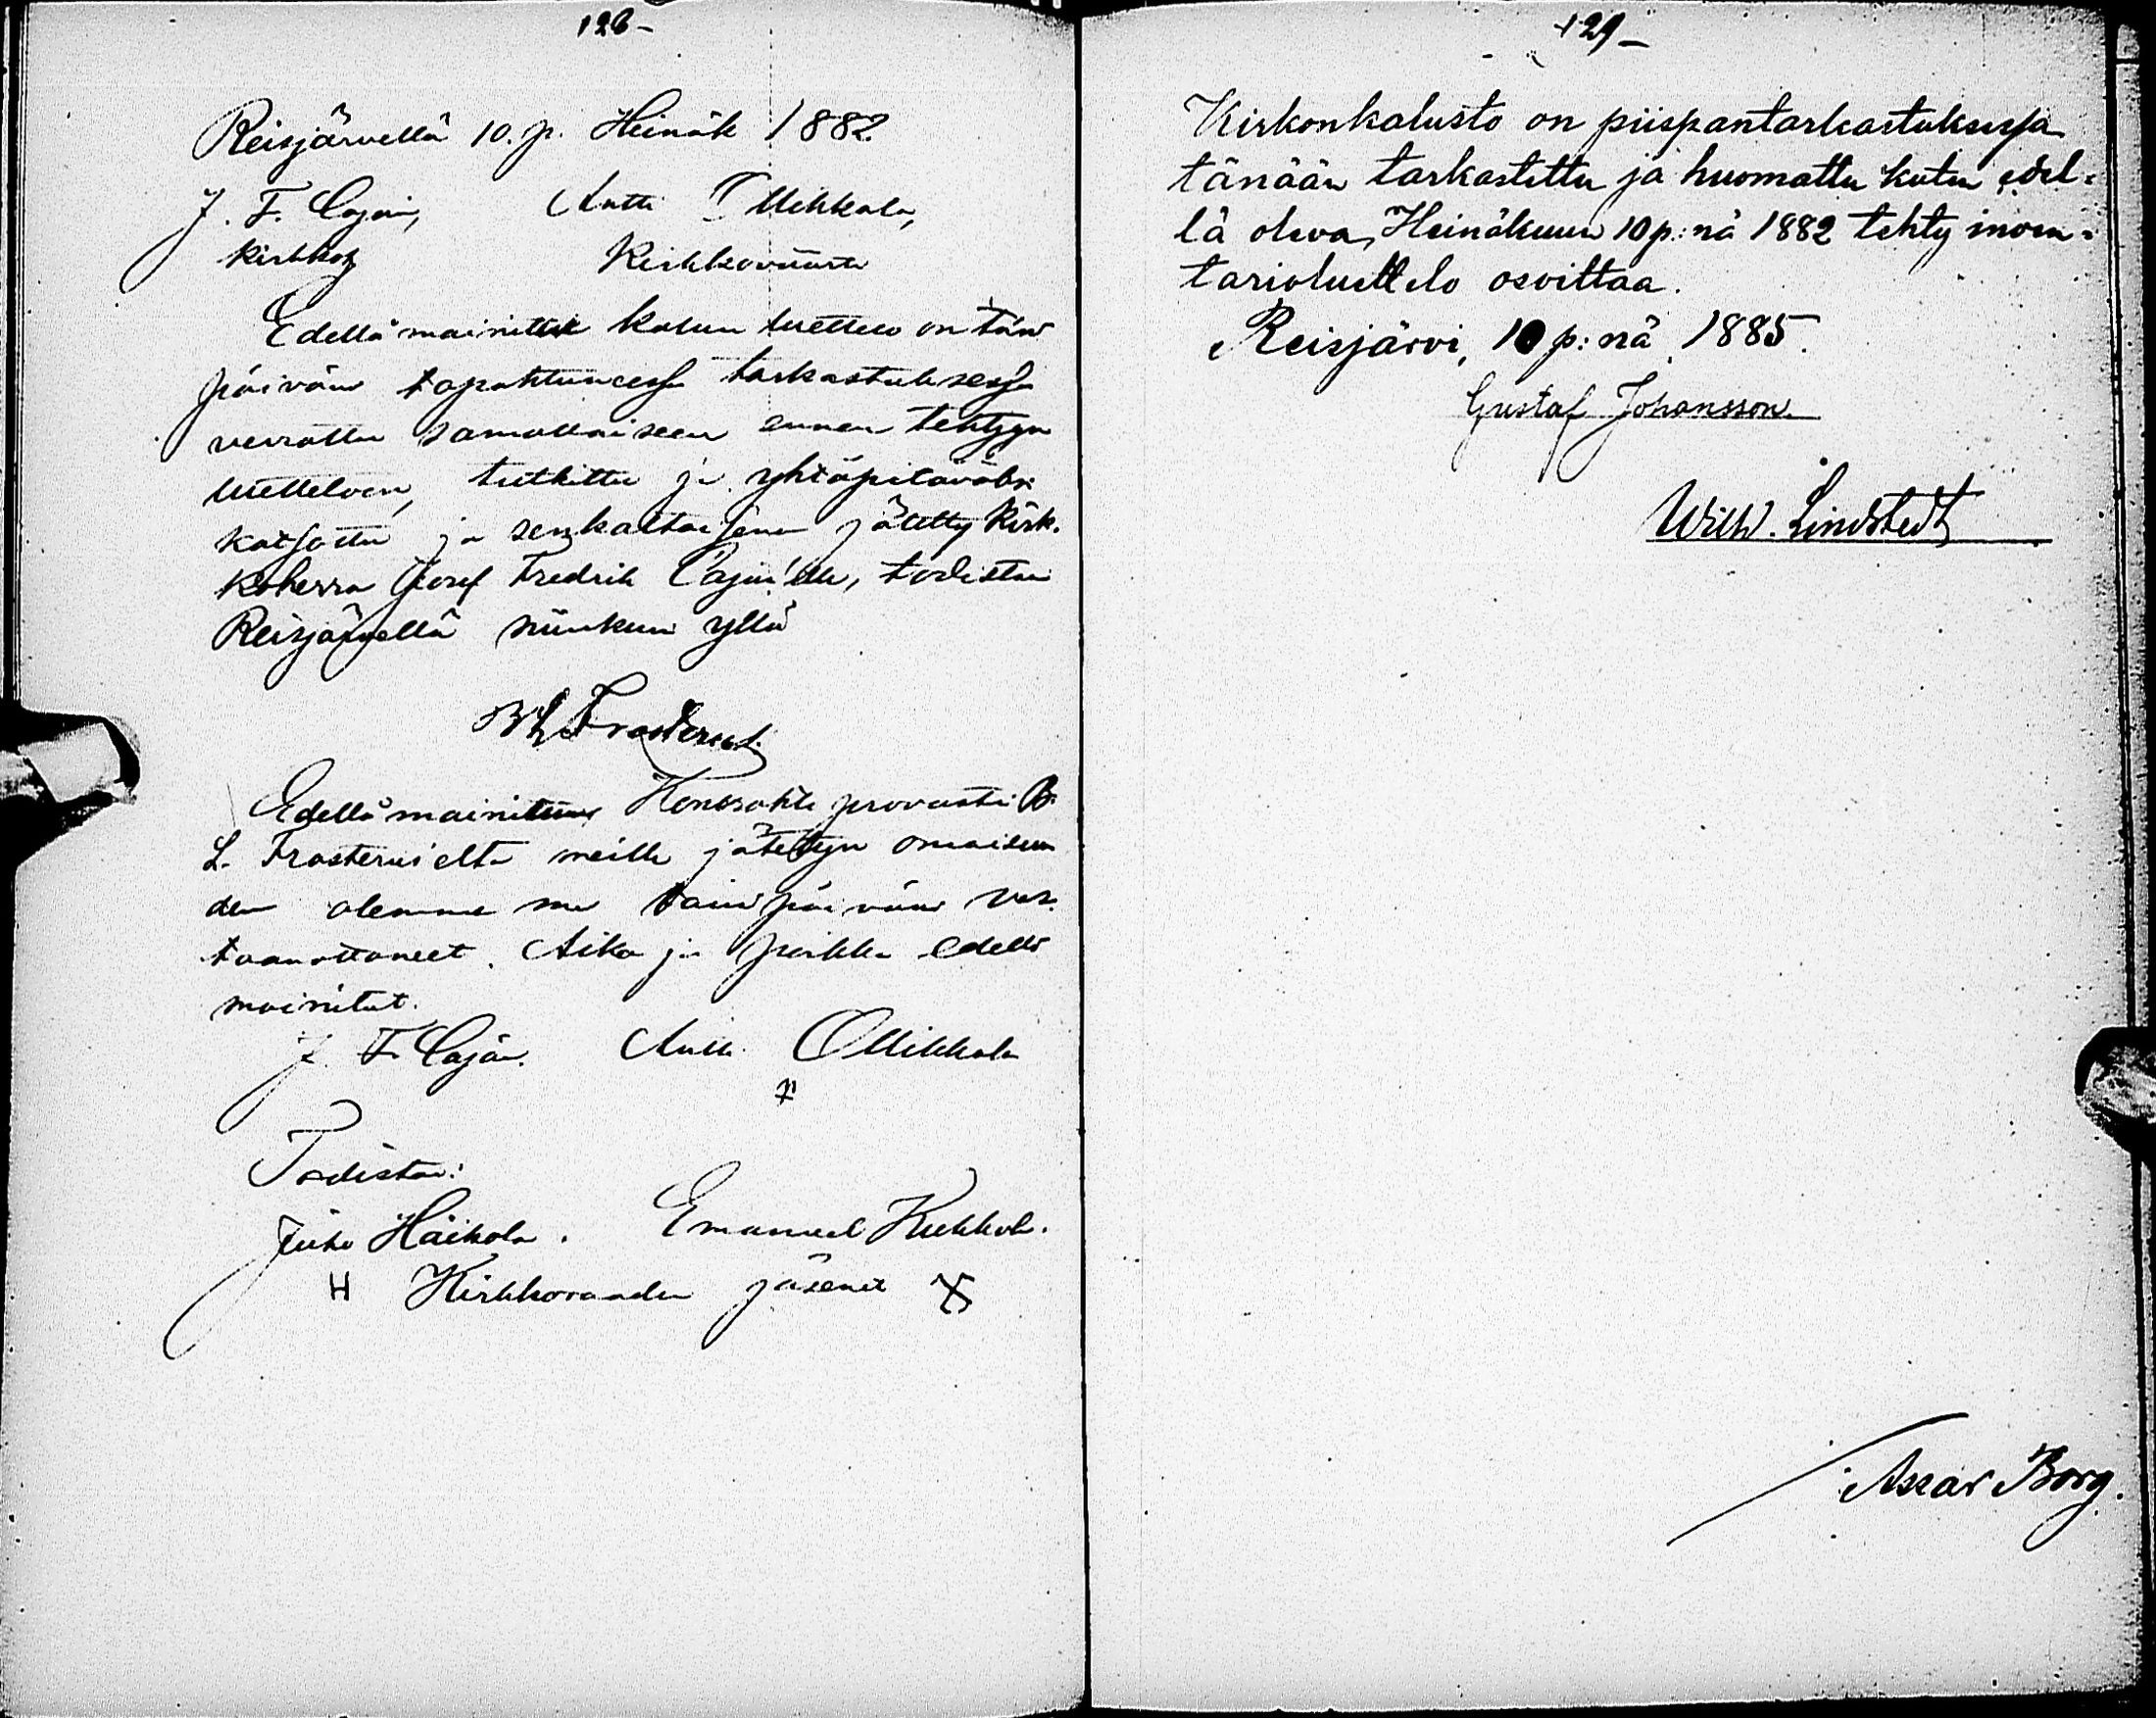 128-
Reisjärvellä 10. p. Heinäk 1882
J. F. Cajan, Antti Ollikkala,
kirkkoh Kirkkoväärti
Edellä mainittu kalun luettelo on tän
päivän tapahtuneessa tarkastuksessa
verrattu samallaiseen ennen tehtyyn
luetteloon, tutkittu ja yhtäpitäväksi
katsottu ja senkaltaisena jätetty Kirk-
koherra Josef Fredrik Cajan'ille, todistaa
Reisjärvellä niinkuin yllä
B L Frosterus.
Edellä mainitun Kontrahti provasti B.
L. Frosterus'elta meille jätetyn omaisuu
den olemme me tänäpäivänä vas-
taanottaneet. Aika ja paikka edellä
mainitut.
J. F. Cajan. Antti Ollikkala
Todistaa:
Juho Häikola. Emanuel Kukkola.
H Kirkkoraadin jäsenet X
129-
Kirkonkalusto on piispantarkastuksessa
tänään tarkastettu ja huomattu kuten edel-
lä oleva, Heinäkuun 10 p:nä 1882 tehty inven-
tarioluettelo osoittaa.
Reisjärvi, 10 p:nä 1885.
Gustaf Johansson
Wilh. Lindstedt
Oskar Borg.